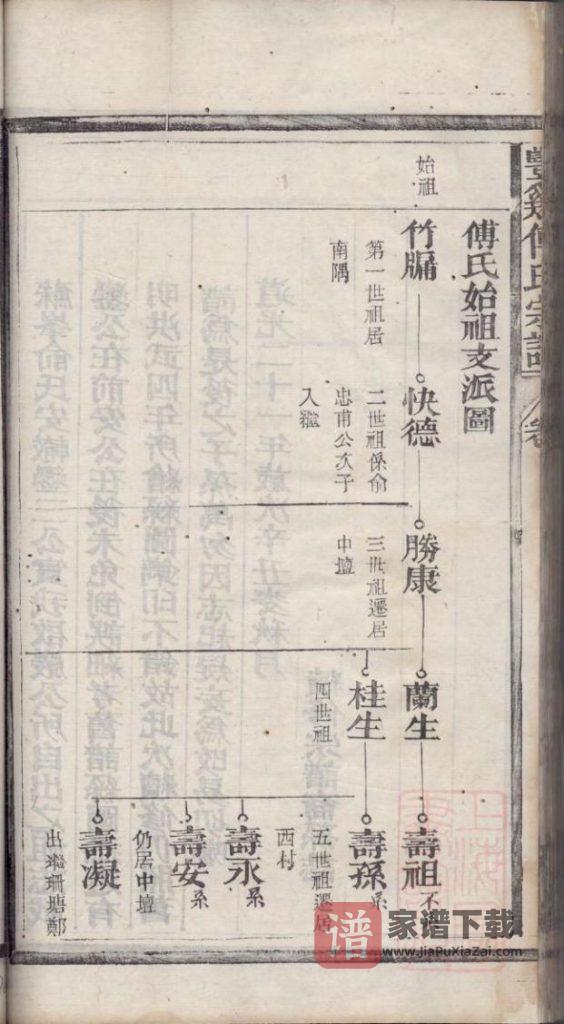 傅氏始祖支派圖
始祖
竹牖
第一世祖居
南隅
快德
二世祖係俞
忠甫公次子
入繼
勝康
三世祖遷居
中壇
蘭生
桂生
四世祖
壽祖
不
壽孫
系
五世祖遷居
西村
壽永
系
壽安
系
仍居中壇
壽凝
出繼珊塘鄭
傅氏宗譜
卷
谱
家谱下载
www.JiaPuXiaZai.com